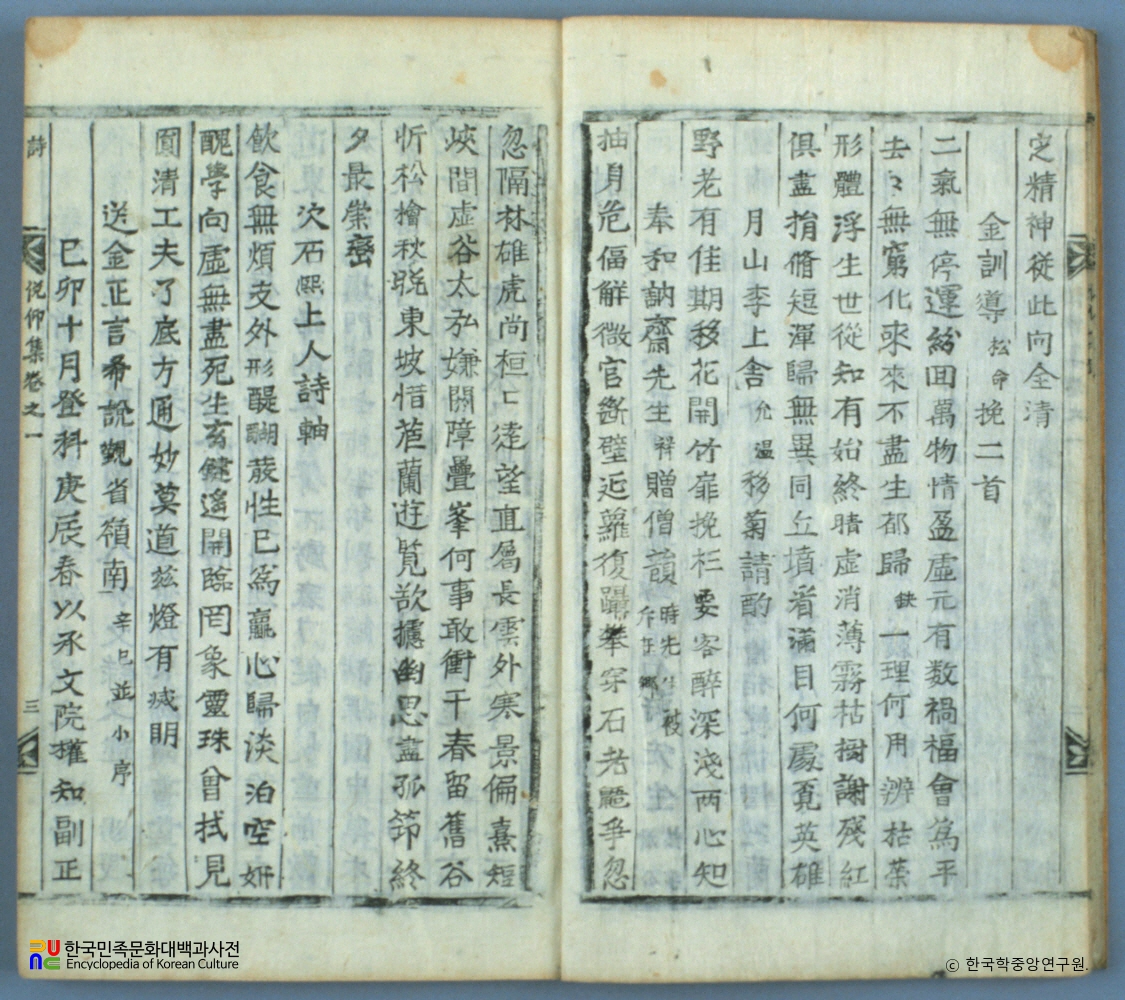 定精神從此向全清
金訓導松命挽二首
二氣無停運紛囬萬物情盈虛元有数禍福會爲平
去〻無窮化來來不盡生都歸缺一理何用辨枯荣
形體浮生世從知有始終晴虛消薄霧枯樹謝殘紅
俱盡脩短渾歸無異同丘墳看滿目何處覓英雄
月山李上舍允溫移菊請酌
野老有佳期移花開竹扉挽衫要客醉深淺兩心知
奉和訥齋先生祥贈僧韻時先生被斥在鄉
抽身危偪解微官斷壁近蘿復躡攀穿石老龍爭忽
忽隔林雄虎尚桓〻遠望直層長雲外寒景偏熹短
峽間虛谷太泓嫌關障疊峯何事敢衝千春留舊谷
忻松檜秋晩東坡惜茝蘭逰覧欲攄幽思盡孤節終
夕最崇巒
次石熙上人詩軸
飮食無煩支外形醍醐蔱性已爲羸心歸淡泊空妍
醜學向虛無盡死生玄鍵遙開臨罔象靈珠曾拭見
圓清工夫了底方通妙莫道玆燈有滅明
送金正言希說覲省嶺南辛巳並小序
巳卯十月登科庚辰春以承文院權知副正
詩
俛仰集卷之一
三
한국민족문화대백과사전
Encyclopedia of Korean Culture
© 한국학중앙연구원.